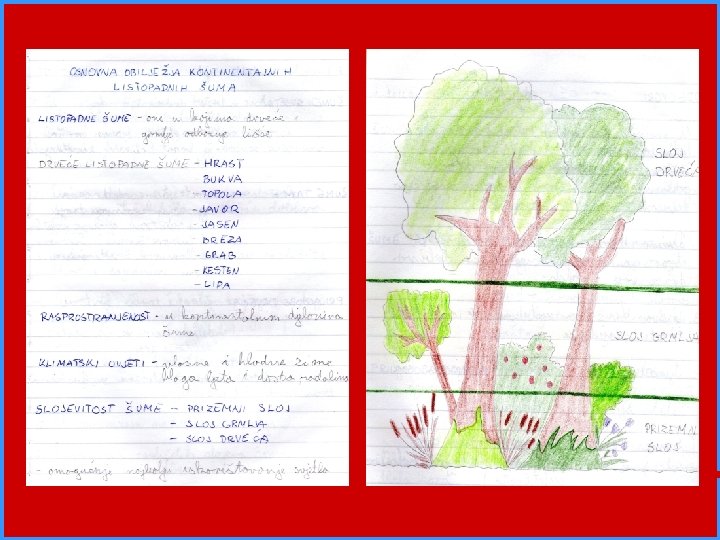 OSNOVNA OBILJEŽJA KONTINENTALNIH
LISTOPADNIH ŠUMA
LISTOPADNE ŠUME - one u kojima drveće i
grmlje odbacuje lišće
DRVEĆE LISTOPADNE ŠUME - HRAST
BUKVA
TOPOLA
- JAVOR
- JASEN
BREZA
- GRAB
- KESTEN
- LIPA
RASPROSTRANJENOST - u kontinentalnim dijelovima
KLIMATSKI UVJETI - i hladne zime
blaga ljeta i dosta padalina
SLOJEVITOST ŠUME - PRIZEMNI SLOJ
- SLOJ GRMLJA
- SLOJ DRVEĆA
- omogućuje najbolje iskorištavanje svjetla
SLOJ
DRVEĆA
SLOJ GRMLJA
PRIZEMNI
SLOJ